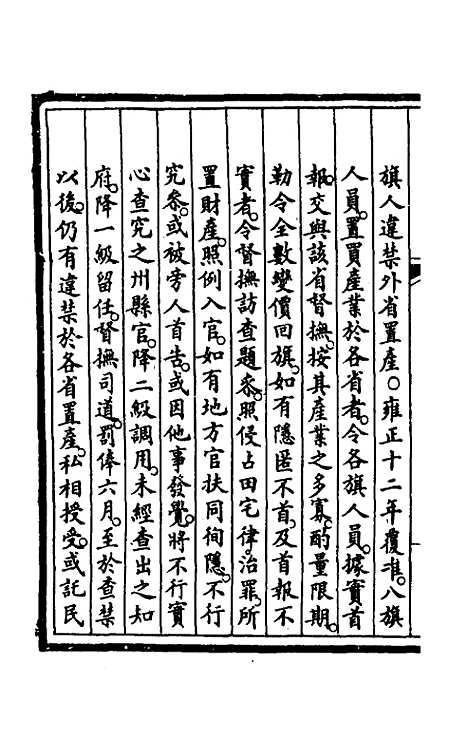 旗人違禁外省置產〇雍正十二年覆准。八旗
人員。置買產業於各省者。令各旗人員。據實首
報。交與該省督撫。按其產業之多寡。酌量限期。
勒令全數變價回旗。如有隱匿不首。及首報不
實者。令督撫訪查題參。照侵占田宅律治罪。所
置財產。照例入官。如有地方官扶同徇隱。不行
究參。或被旁人首告。或因他事發覺。將不行實
心查究之州縣官。降二級調用。未經查出之知
府。降一級留任。督撫司道。罰俸六月。至於查禁
以後。仍有違禁於各省置產。私相授受。或託民